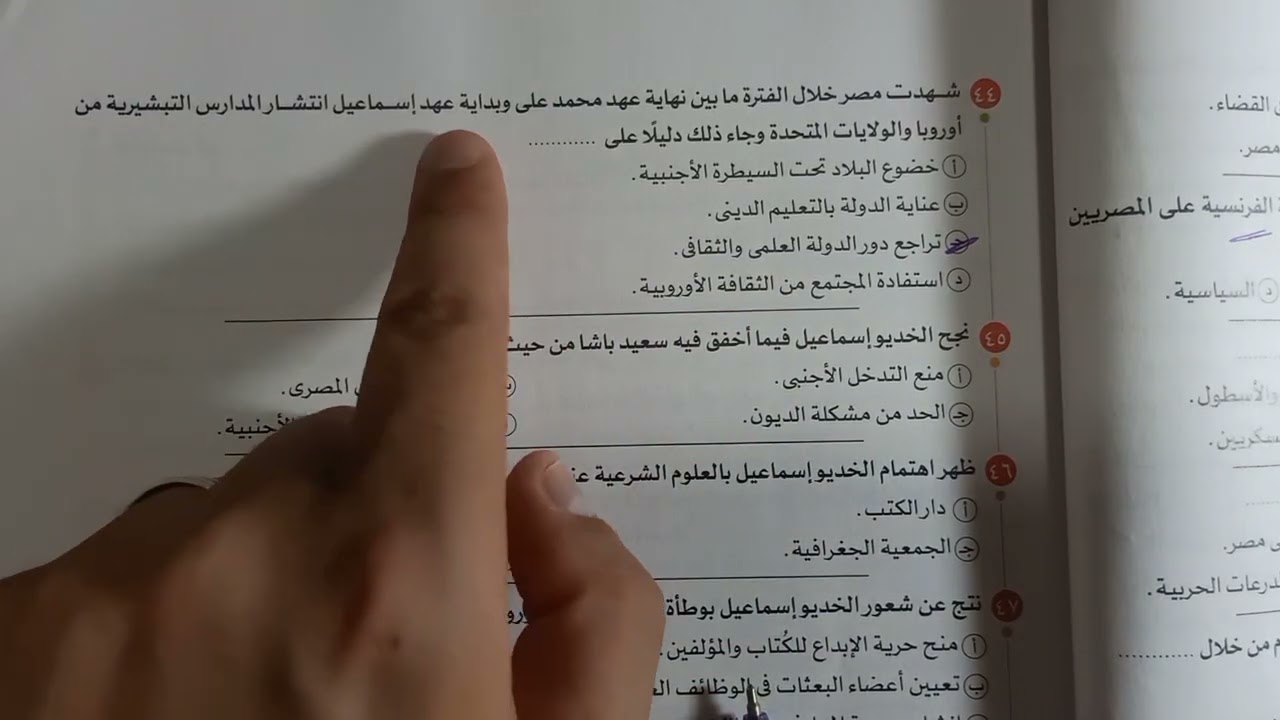 ٤٤ شهدت مصر خلال الفترة ما بين نهاية عهد محمد على وبداية عهد إسماعيل انتشار المدارس التبشيرية من
أوروبا والولايات المتحدة وجاء ذلك دليلًا على ............
أ خضوع البلاد تحت السيطرة الأجنبية.
ب عناية الدولة بالتعليم الدينى.
ج تراجع دور الدولة العلمى والثقافى.
د استفادة المجتمع من الثقافة الأوروبية.
٤٥ نجح الخديو إسماعيل فيما أخفق فيه سعيد باشا من حيث
أ منع التدخل الأجنبى.
المصرى.
ج الحد من مشكلة الديون.
الأجنبية.
٤٦ ظهر اهتمام الخديو إسماعيل بالعلوم الشرعية
أ دار الكتب.
ج الجمعية الجغرافية.
٤٧ نتج عن شعور الخديو إسماعيل بوطأة
أ منح حرية الإبداع للكُتاب والمؤلفين.
ب تعيين أعضاء البعثات فى الوظائف
القضاء.
مصر.
الفرنسية على المصريين
د السياسية.
والأسطول.
مصر.
الحربية.
من خلال ............